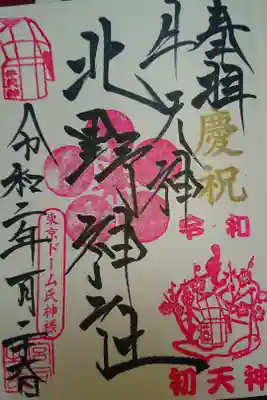 奉拝
慶祝
令和
初天神
牛天神
北野神社
東京ドーム氏神様
令和二年一月二十五日